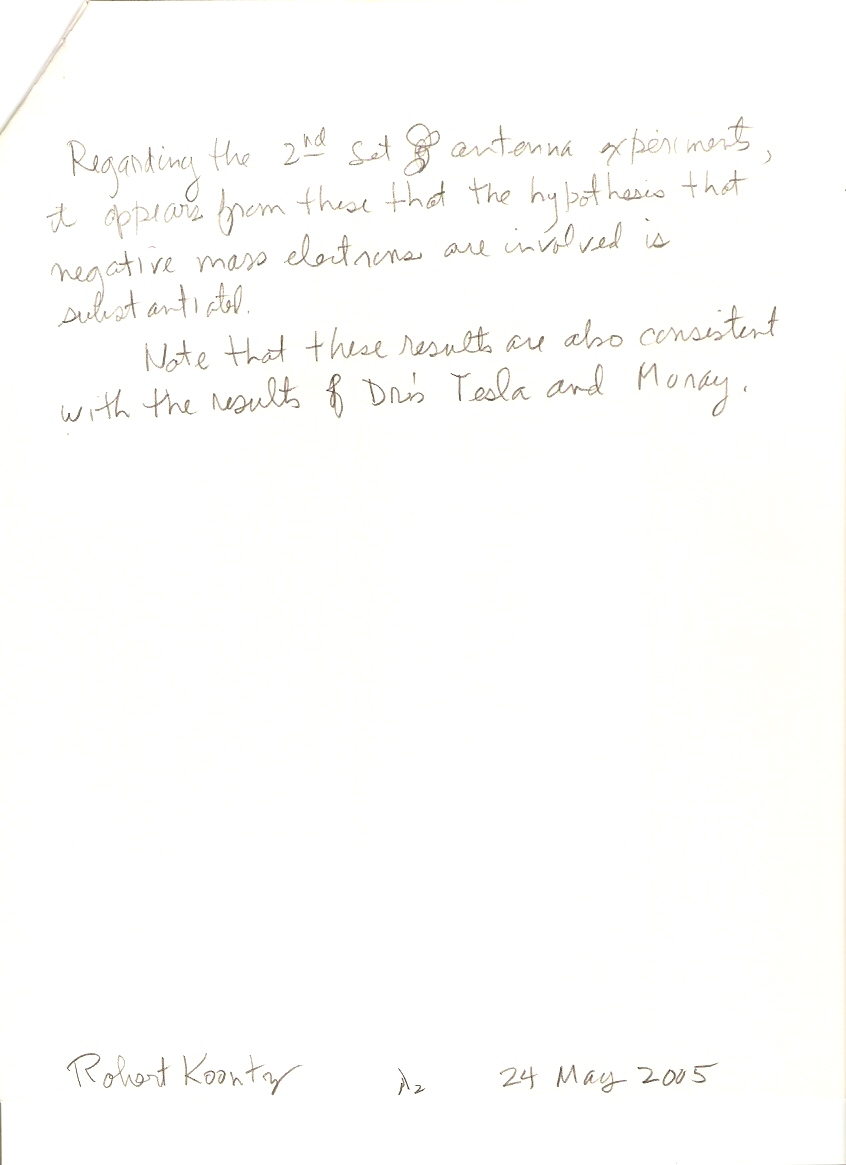 Regarding the 2nd Set of antenna experiments,
it appears from these that the hypothesis that
negative mass electrons are involved is
substantiated.
Note that these results are also consistent
with the results of Dr's Tesla and Moray.
Robert Koontz 24 May 2005